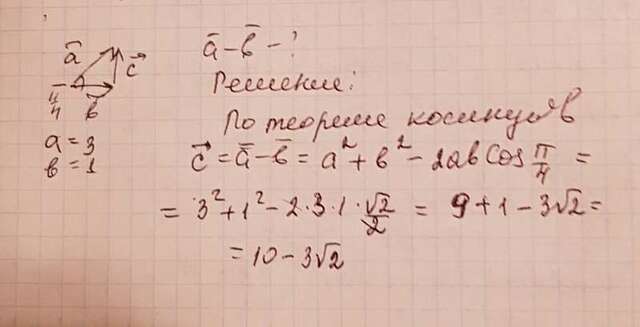 a̅ c⃗
π/4 b̅
a = 3
b = 1
a̅ − b̅ − ?
Решение:
По теореме косинусов
c⃗ = a̅ − b̅ = a² + b² − 2ab cos π/4 =
= 3² + 1² − 2·3·1·√2/2 = 9 + 1 − 3√2 =
= 10 − 3√2